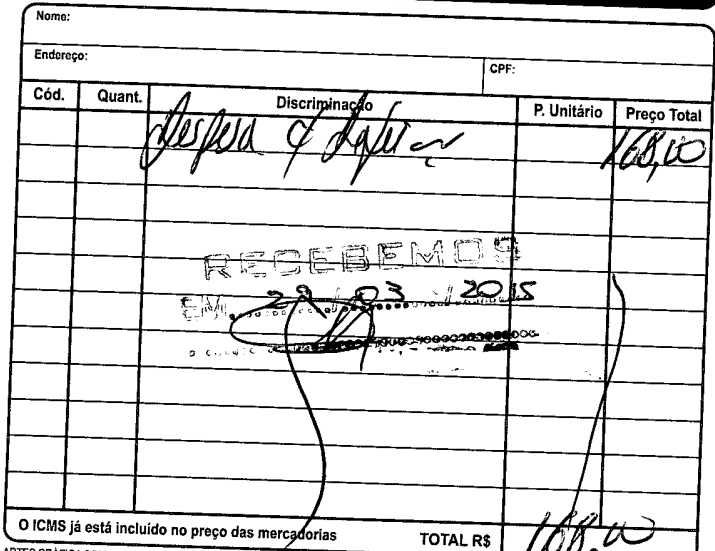 Nome:
Endereço: CPF:
Cód. Quant. Discriminação P. Unitário Preço Total
Despesa 168,00
RECEBEMOS
EM 29 / 03 / 2015
O ICMS já está incluído no preço das mercadorias TOTAL R$ 168,00